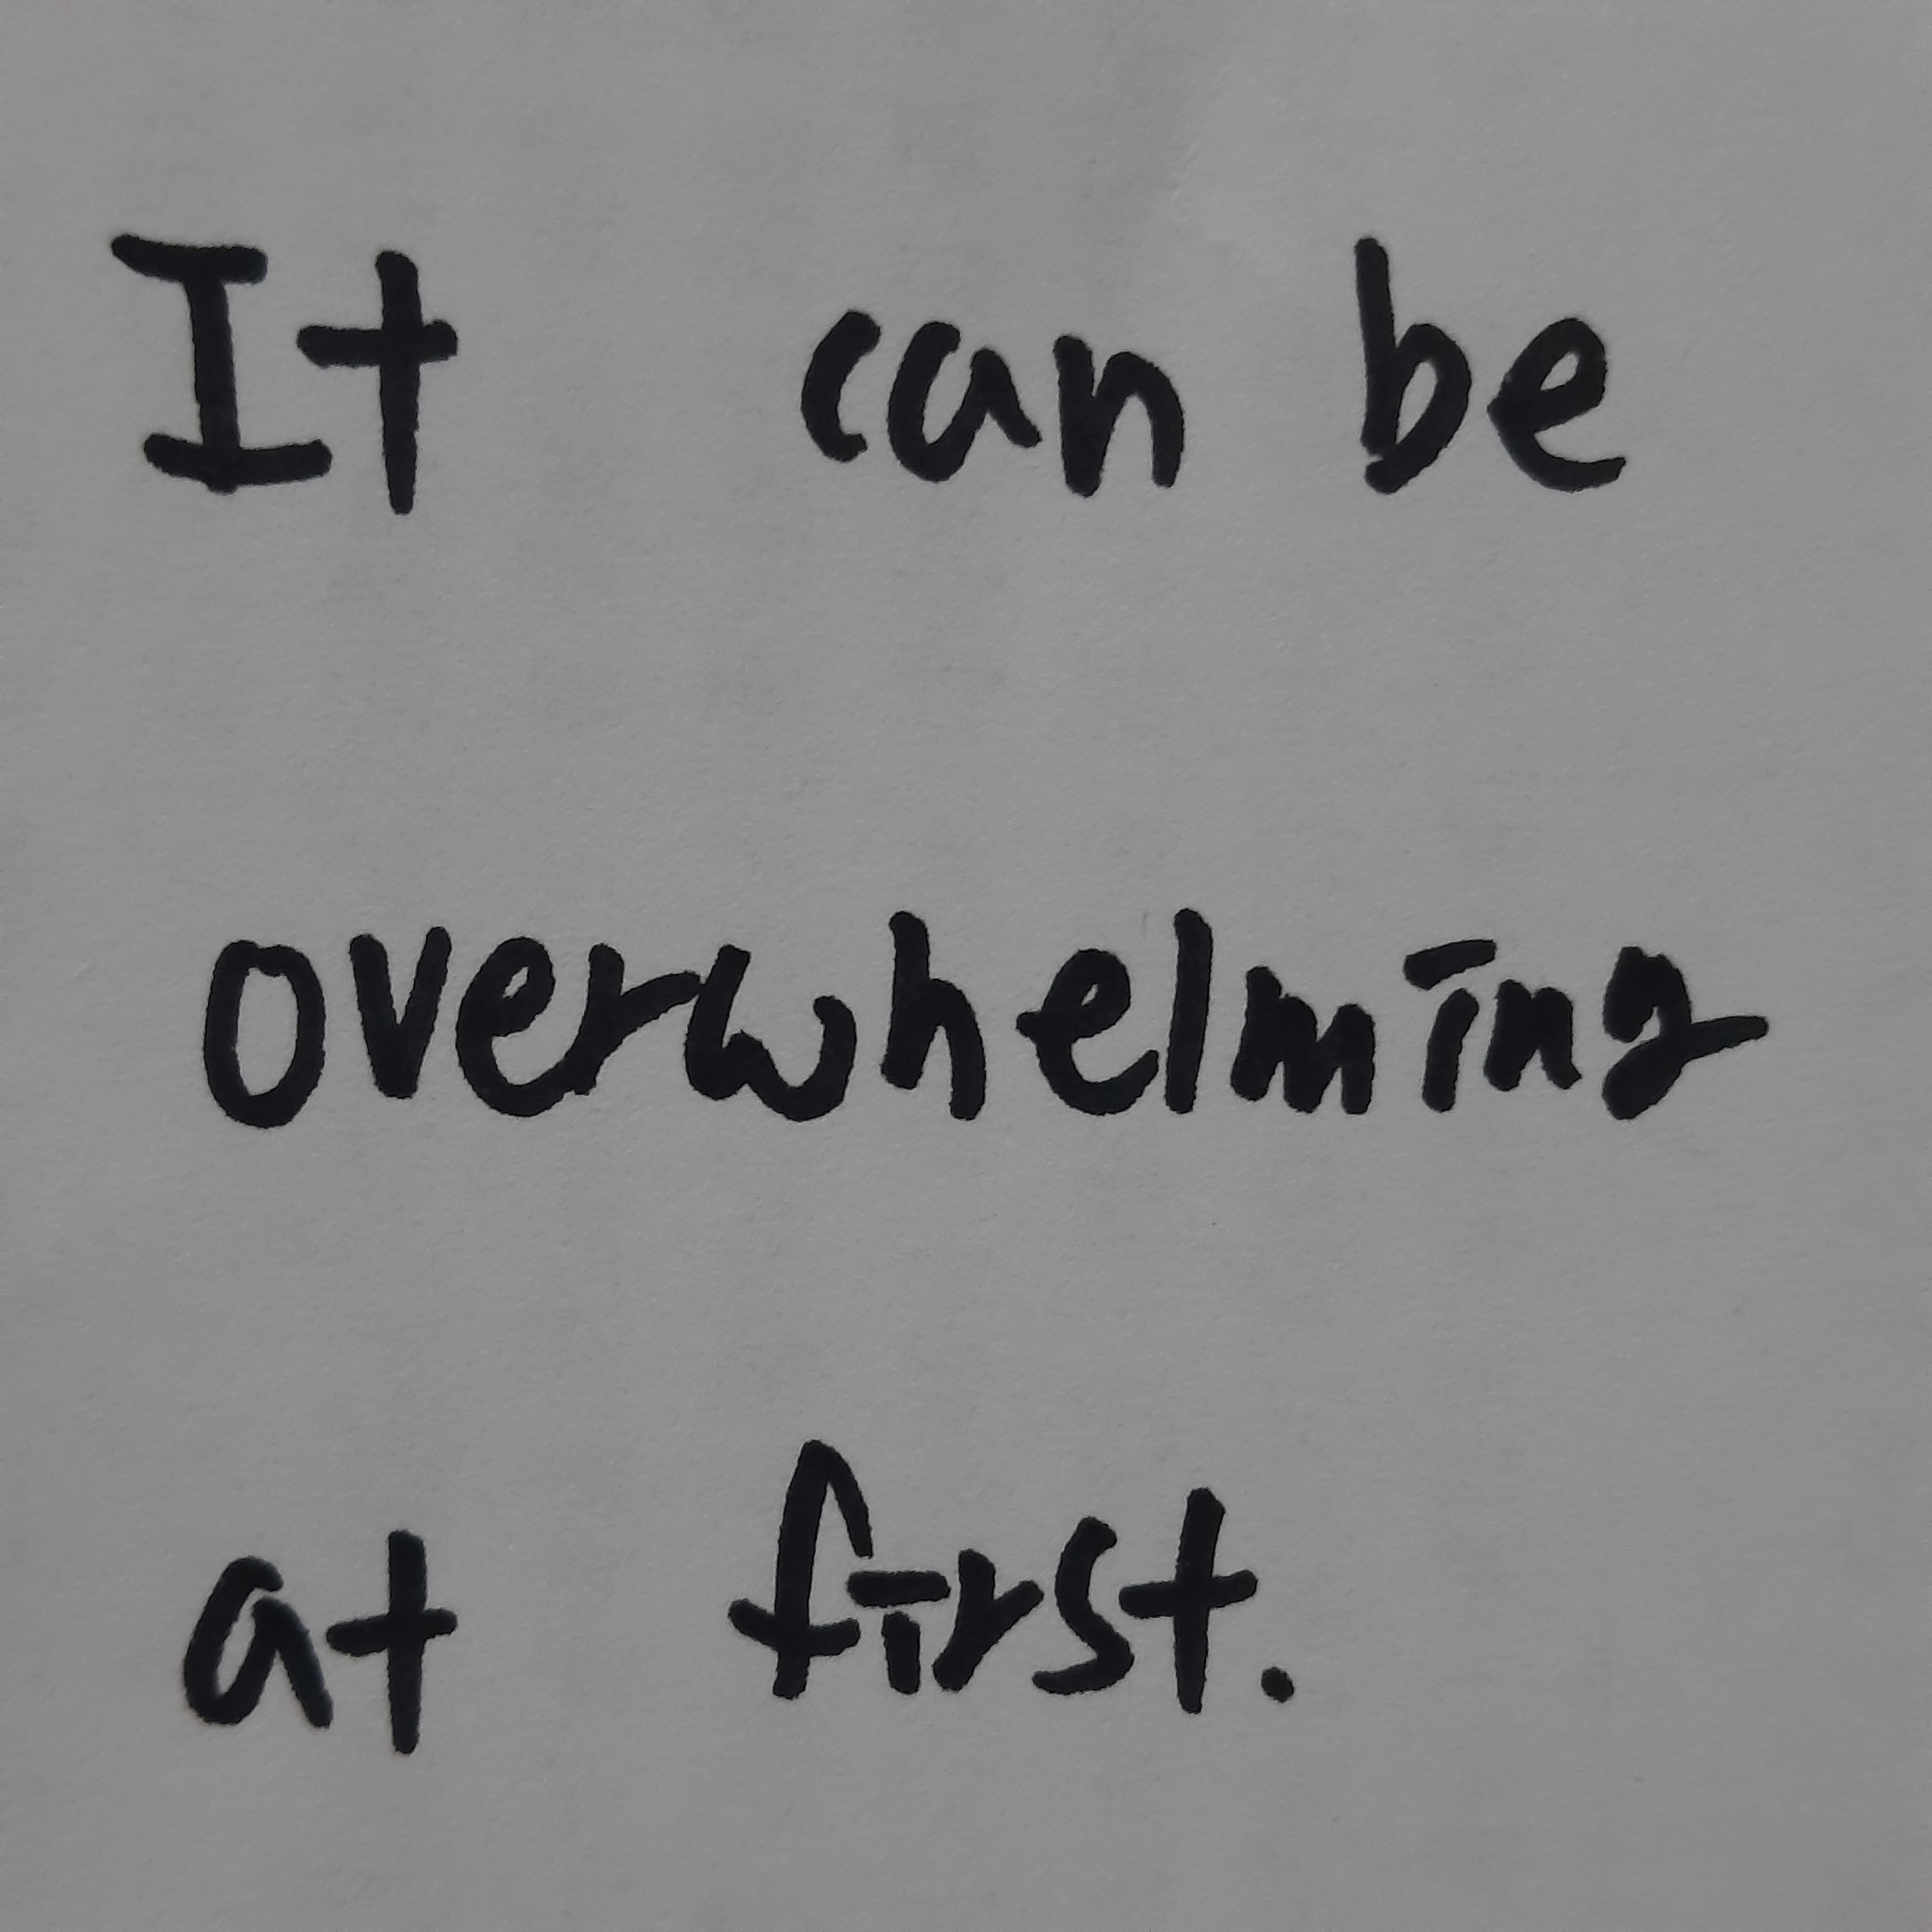 It can be
overwhelming
at first.